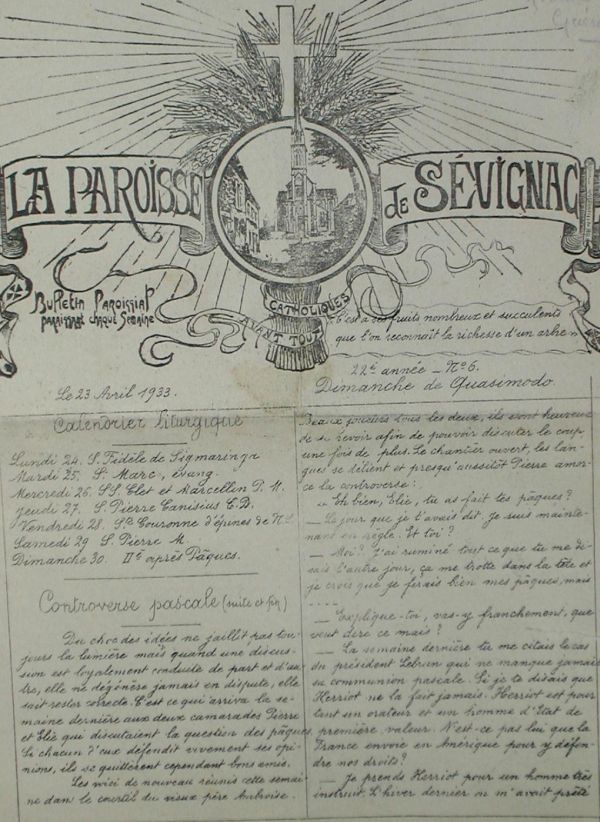 LA PAROISSE de SÉVIGNAC
Bulletin Paroissial
paraissant chaque Semaine
CATHOLIQUES
AVANT TOUT
"C'est à ses fruits nombreux et succulents
que l'on reconnaît la richesse d'un arbre"
Le 23 Avril 1933.
22e année - No 6.
Dimanche de Quasimodo.
Calendrier liturgique
Lundi 24. S. Fidèle de Sigmaringa
Mardi 25. S. Marc, évang.
Mercredi 26. SS. Clet et Marcellin P. M.
Jeudi 27. S. Pierre Canisius C. D.
Vendredi 28. Ste Couronne d'épines de N. S.
Samedi 29. S. Pierre M.
Dimanche 30. IIe après Pâques.
Controverse pascale (suite et fin)
Du choc des idées ne jaillit pas tou-
jours la lumière mais quand une discus-
sion est loyalement conduite de part et d'au-
tre, elle ne dégénère jamais en dispute, elle
sait rester correcte. C'est ce qui arriva la se-
maine dernière aux deux camarades Pierre
et Elie qui discutaient la question des pâques
Si chacun d'eux défendit vivement ses opi-
nions, ils se quittèrent cependant bons amis.
Les voici de nouveau réunis cette semai-
ne dans le courtil du vieux père Ambroise.
Beaux joueurs tous les deux, ils sont heureux
de se revoir afin de pouvoir discuter le coup
une fois de plus. Le chantier ouvert, les lan-
gues se délient et presqu'aussitôt Pierre amor-
ce la controverse:
"Eh bien, Elie, tu as fait tes pâques?
— Le jour que je t'avais dit. Je suis mainte-
nant en règle. Et toi?
— Moi? J'ai ruminé tout ce que tu me di-
sais l'autre jour, ça me trotte dans la tête et
je crois que je ferais bien mes pâques, mais
....
— Explique-toi, vas-y franchement, que
veut dire ce mais?
— La semaine dernière tu me citais le cas
du président Lebrun qui ne manque jamais
sa communion pascale. Si je te disais que
Herriot ne la fait jamais. Herriot est pour-
tant un orateur et un homme d'État de
première valeur. N'est-ce pas lui que la
France envoie en Amérique pour y défen-
dre nos droits?
— Je prends Herriot pour un homme très
instruit. L'hiver dernier on m'avait prêté